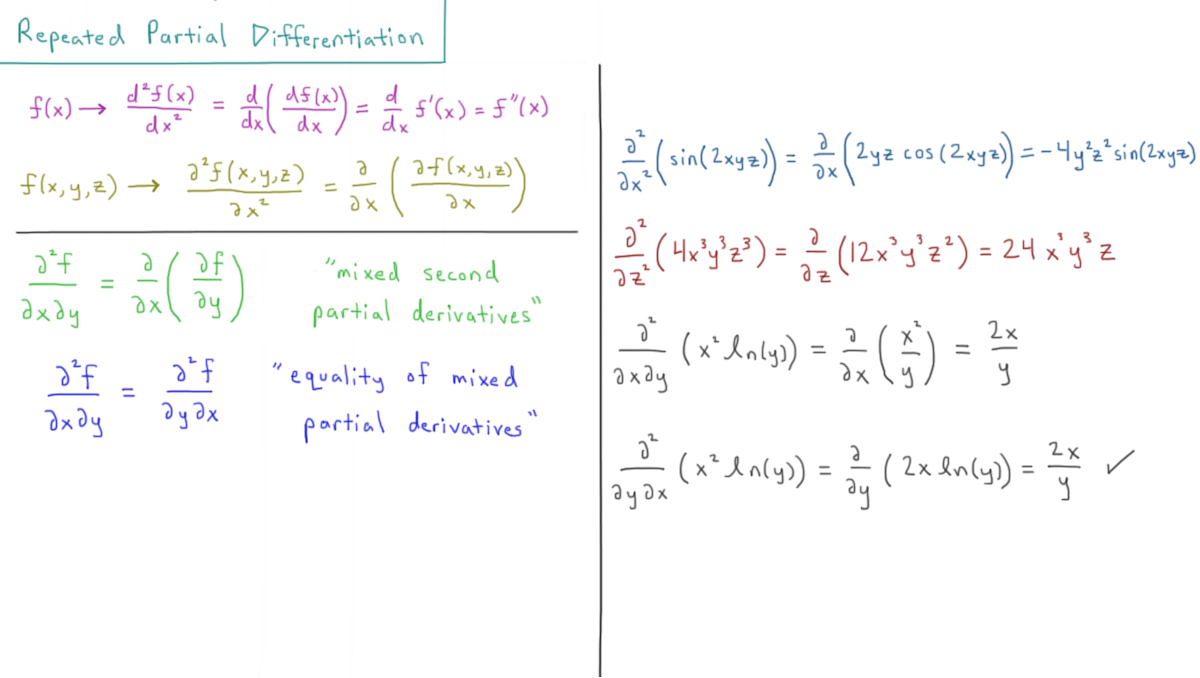 Repeated Partial Differentiation
f(x) → d²f(x)/dx² = d/dx (df(x)/dx) = d/dx f'(x) = f"(x)
f(x,y,z) → ∂²f(x,y,z)/∂x² = ∂/∂x (∂f(x,y,z)/∂x)
∂²f/∂x∂y = ∂/∂x (∂f/∂y) "mixed second
partial derivatives"
∂²f/∂x∂y = ∂²f/∂y∂x "equality of mixed
partial derivatives"
∂²/∂x² (sin(2xyz)) = ∂/∂x (2yz cos(2xyz)) = -4y²z² sin(2xyz)
∂²/∂z² (4x³y³z³) = ∂/∂z (12x³y³z²) = 24x³y³z
∂²/∂x∂y (x² ln(y)) = ∂/∂x (x²/y) = 2x/y
∂²/∂y∂x (x² ln(y)) = ∂/∂y (2x ln(y)) = 2x/y ✓